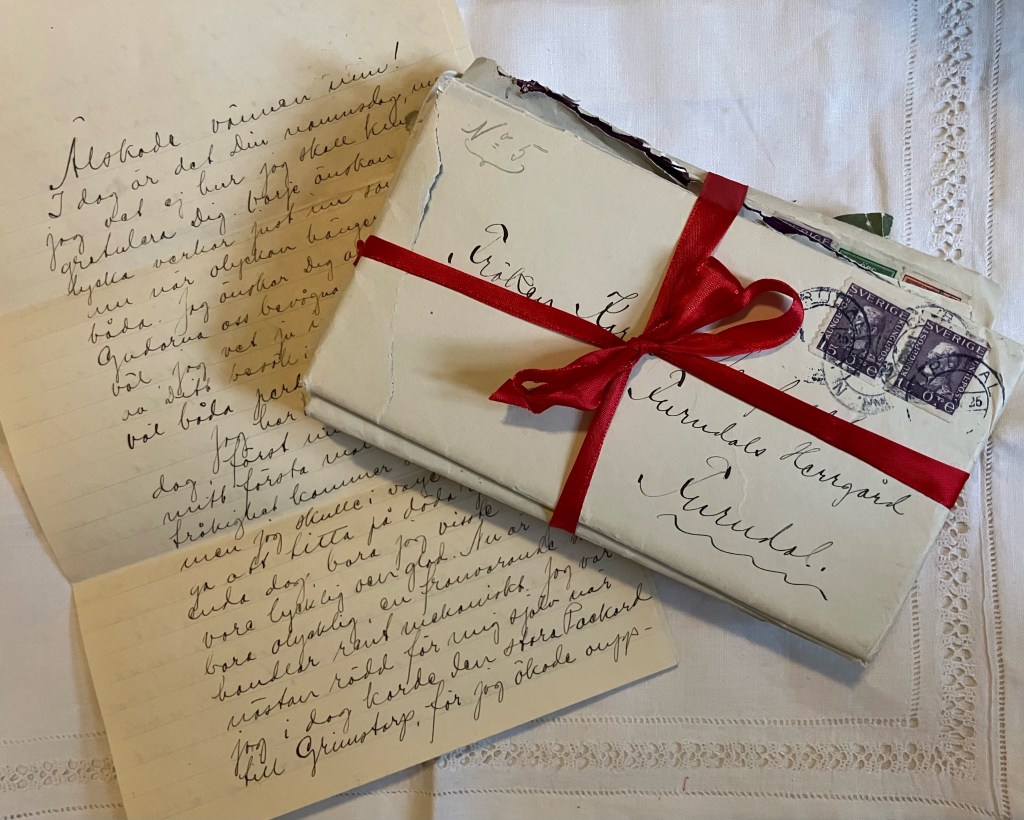 Älskade vännen min!
I dag är det Din namnsdag, m
jag vet ej hur jag skall kun
gratulera Dig. Varje önskan
lycka verkar just nu so
nu när olyckan hänger
båda. Jag önskar Dig a
Gudarna oss bevågna
väl, jag vet ju
av Ditt
väl båda
Jag har
dag, först
mitt första
tråkighet kommer
men jag skulle i varje
ga att titta på döda
enda dag, bara jag visste
vore lycklig och glad. Nu är
bara olycklig, en frånvarande
handlar rent mekaniskt. Jag var
nästan rädd för mig själv när
jag i dag körde den stora Packard
till Grimstorp, för jag ökade upp-
No 5
Fröken
Turndals Herrgård
Turndal.
SVERIGE
15 ÖRE
SVERIGE
10 ÖRE